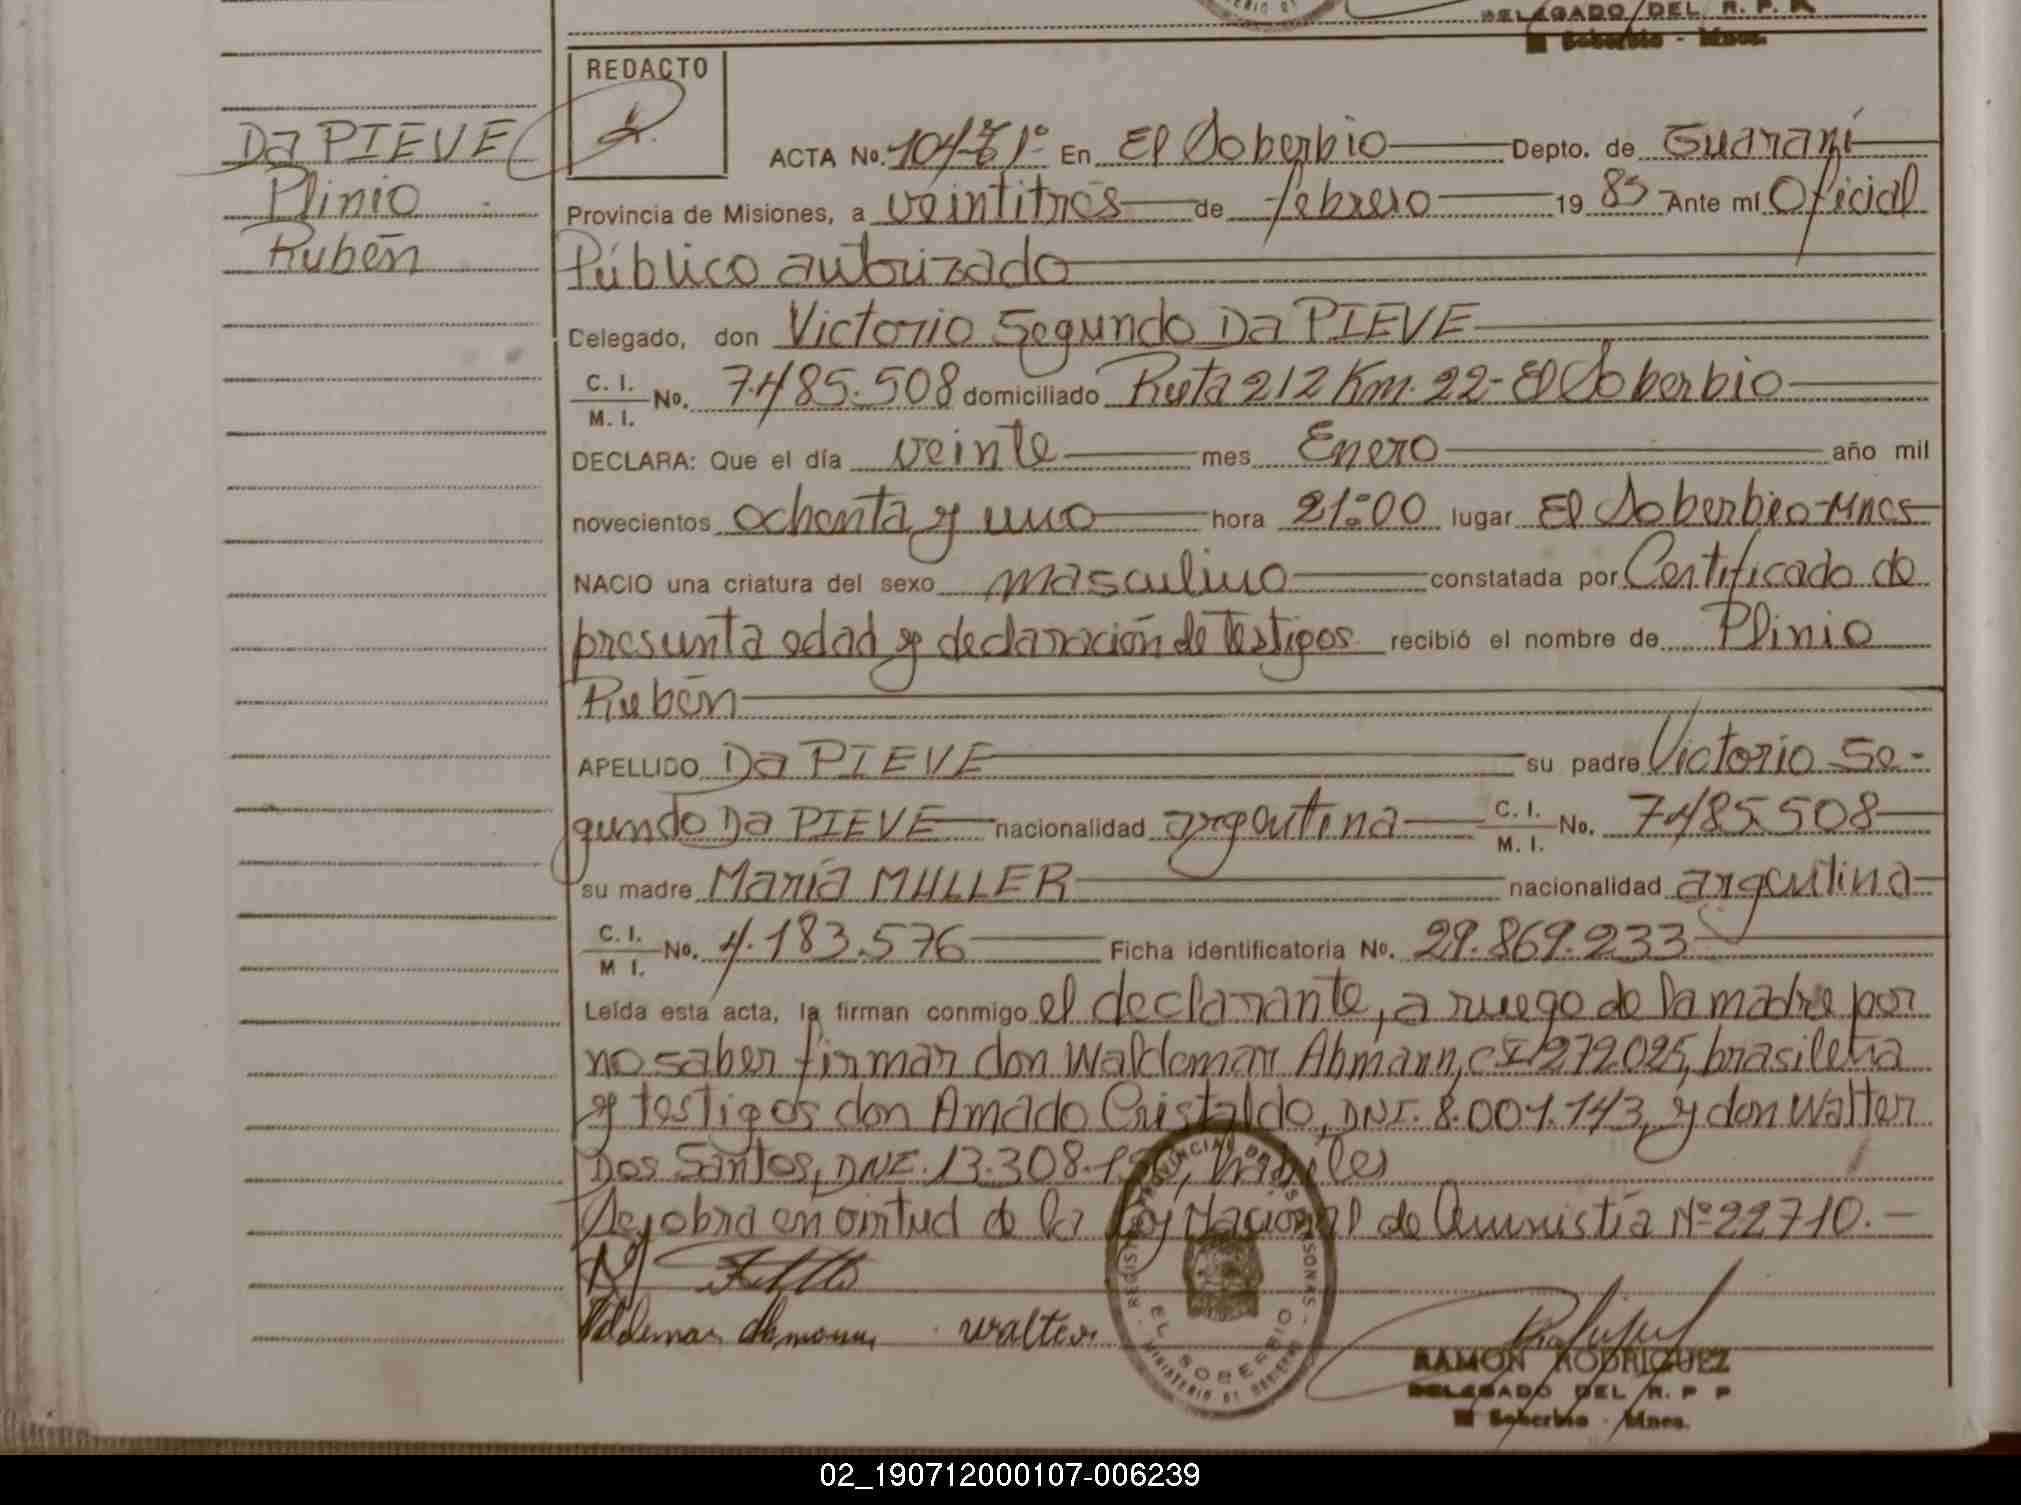 DELEGADO DEL R. P. P.
El Soberbio - Mnes.
REDACTO
Da PIEVE
Plinio
Rubén
ACTA No. 104 Tº 1º En El Soberbio Depto. de Guaraní
Provincia de Misiones, a veintitrés de febrero 1983 Ante mí Oficial
Público autorizado
Celegado, don Victorio Segundo Da PIEVE
C. I. / M. I. No. 7.485.508 domiciliado Ruta 212 Km. 22- El Soberbio
DECLARA: Que el día veinte mes Enero año mil
novecientos ochenta y uno hora 21:00 lugar El Soberbio-Mnes
NACIO una criatura del sexo masculino constatada por Certificado de
presunta edad y declaración de Testigos recibió el nombre de Plinio
Rubén
APELLIDO Da PIEVE su padre Victorio Se-
gundo Da PIEVE nacionalidad argentina C. I. / M. I. No. 7.485.508
su madre María MULLER nacionalidad argentina
C. I. / M I. No. 4.183.576 Ficha identificatoria No. 29.869.233
Leída esta acta, la firman conmigo el declarante, a ruego de la madre por
no saber firmar don Waldemar Ahmann, CI 272025, brasileña
y testigos don Amado Cristaldo, DNI. 8.001.143, y don Walter
Dos Santos, DNI. 13.308. hábiles
Se obra en virtud de la Ley Nacional de Amnistía Nº 22710.-
Valdemar Ahmann Walter
REGISTRO PROVINCIAL DE LAS PERSONAS
EL SOBERBIO
MINISTERIO DE GOBIERNO
RAMON RODRIGUEZ
DELEGADO DEL R. P P
El Soberbio - Mnes.
02_190712000107-006239